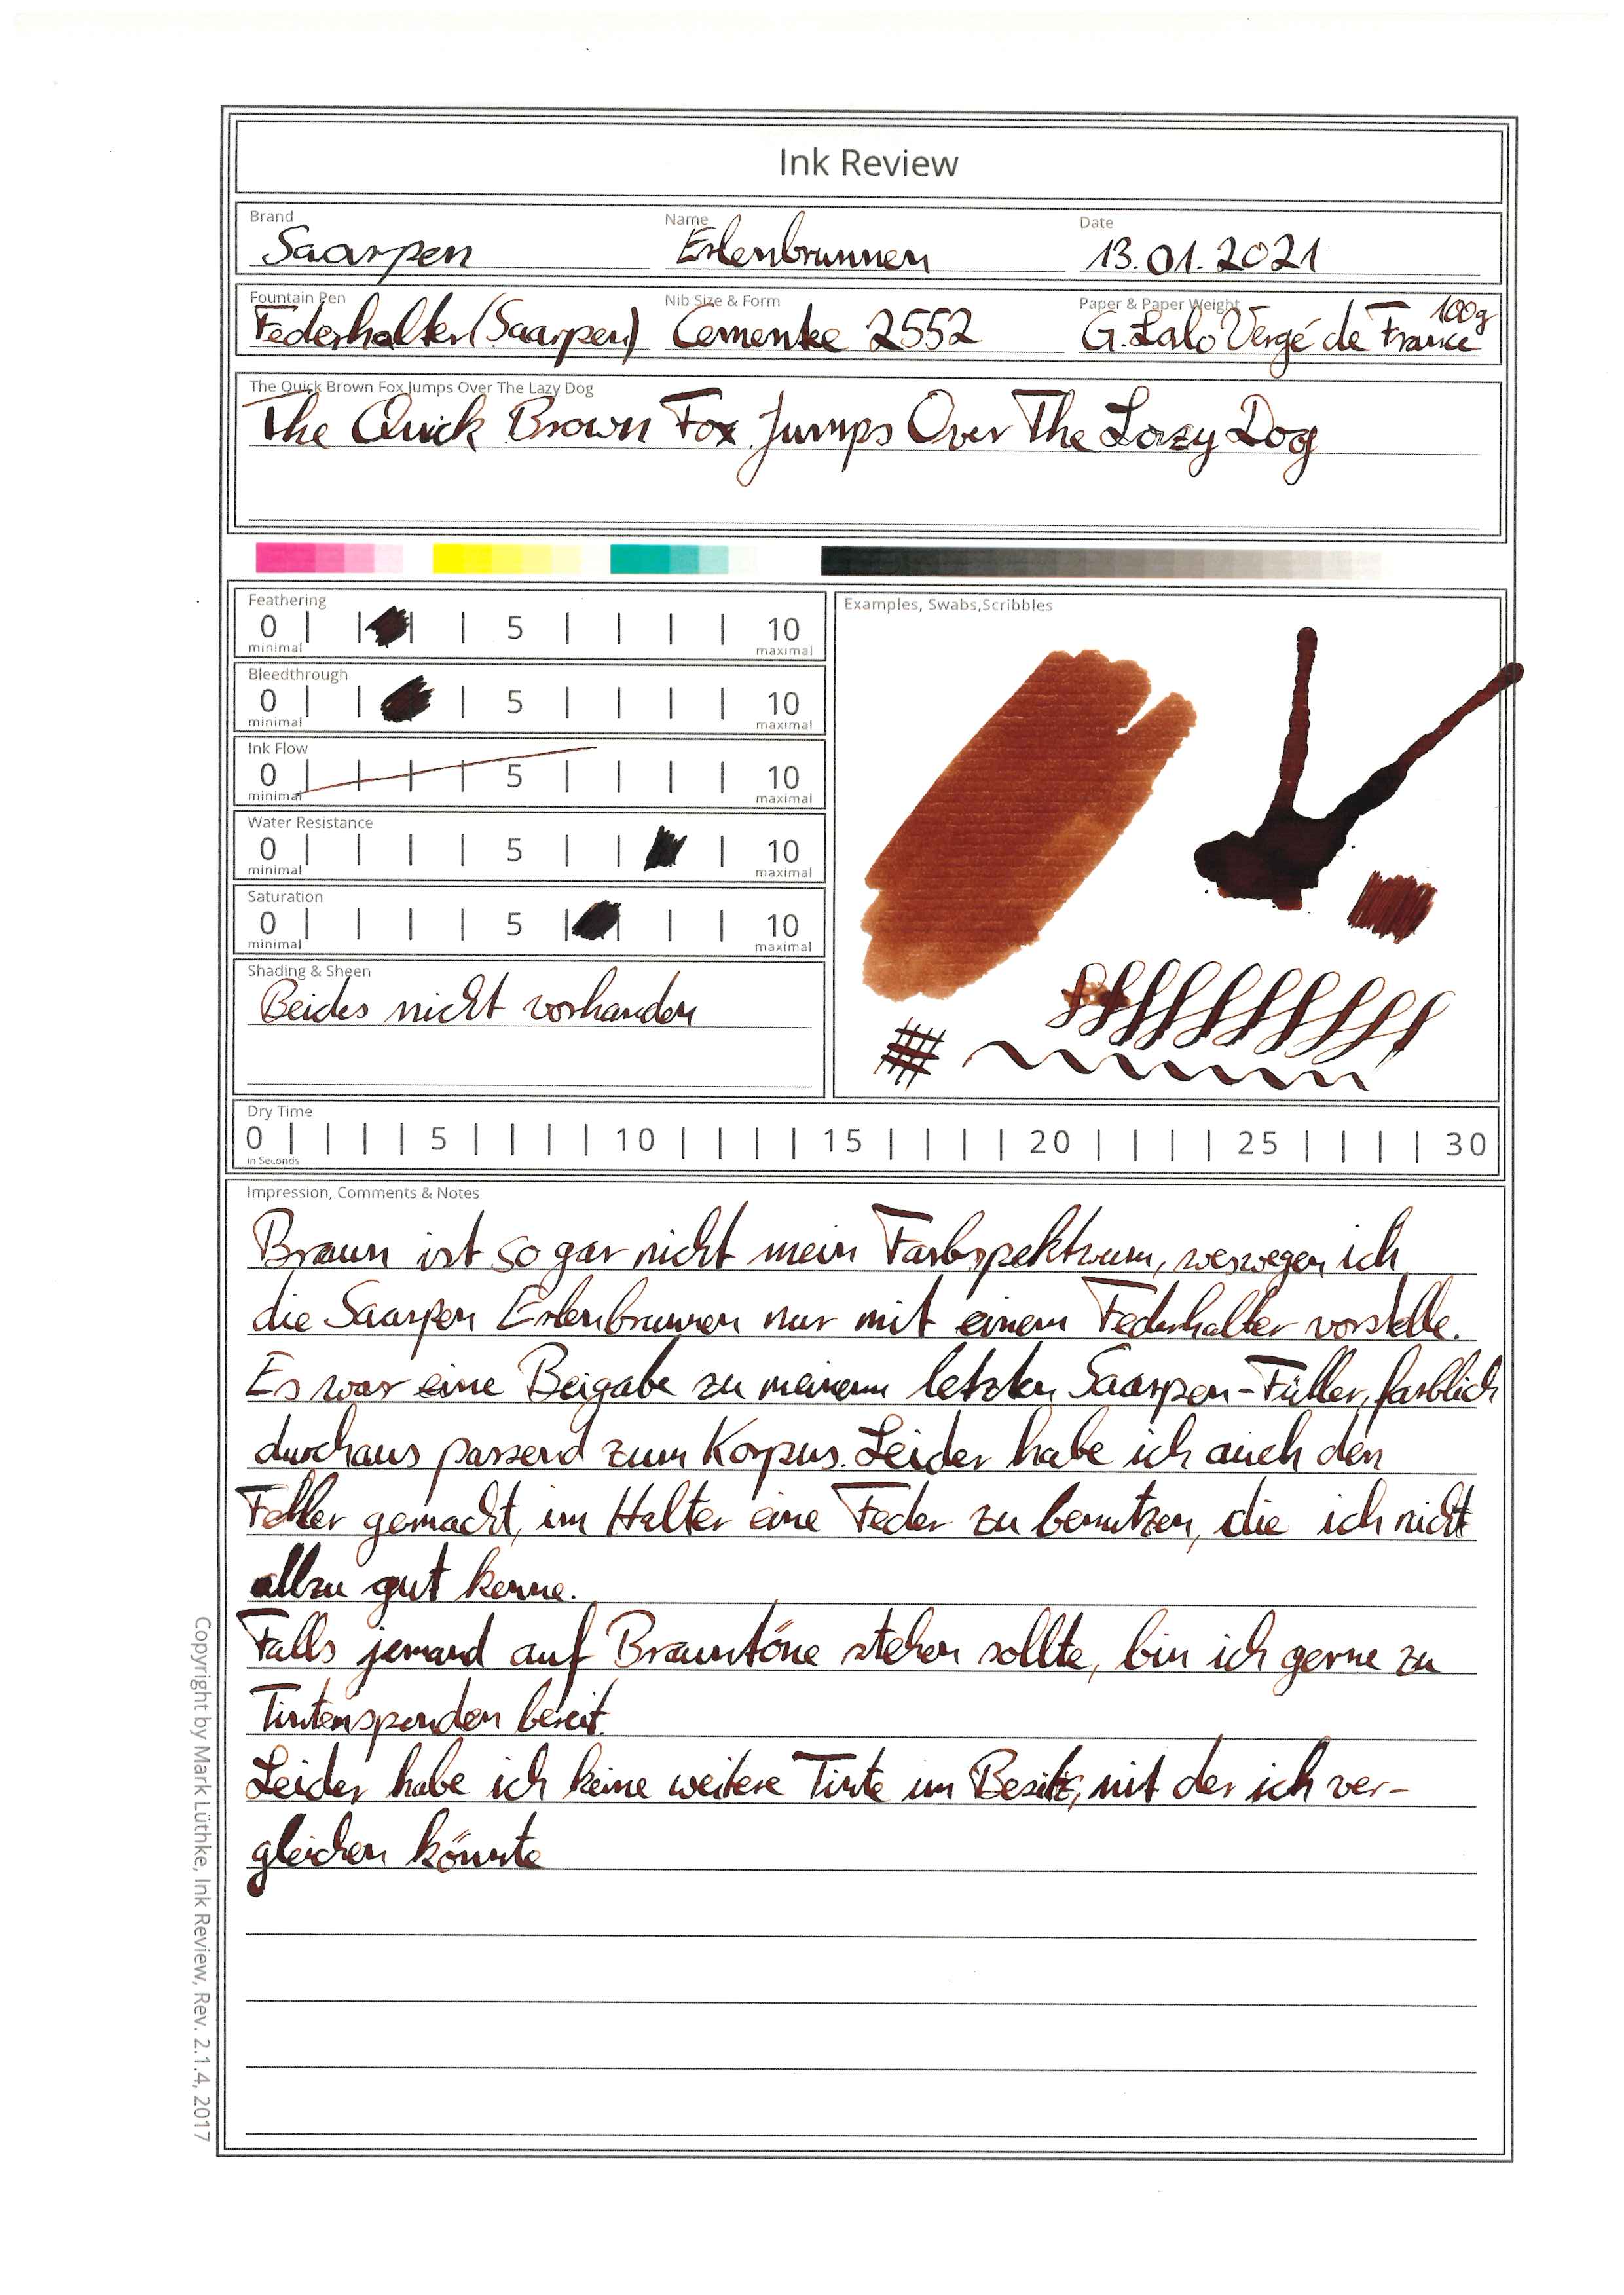 Ink Review
Brand Name Date
Saarpen Erlenbrunnen 13.01.2021
Fountain Pen Nib Size & Form Paper & Paper Weight
100g
Federhalter (Saarpen) 2552 G. Lalo Vergé de France
The Quick Brown Fox Jumps Over The Lazy Dog
The Quick Brown Fox Jumps Over The Lazy Dog
Feathering
0 5 10
minimal maximal
Bleedthrough
0 5 10
minimal maximal
Ink Flow
0 5 10
minimal maximal
Water Resistance
0 5 10
minimal maximal
Saturation
0 5 10
minimal maximal
Shading & Sheen
Beides nicht vorhanden
Examples, Swabs,Scribbles
Dry Time
0 5 10 15 20 25 30
in Seconds
Impression, Comments & Notes
Braun ist so gar nicht mein Farbspektrum, weswegen ich
die Saarpen Erlenbrunnen nur mit einem Federhalter vorstelle.
Es war eine Beigabe zu meinem letzten Saarpen-Füller, farblich
durchaus passend zum Korpus. Leider habe ich auch den
Fehler gemacht, im Halter eine Feder zu benutzen, die ich nicht
allzu gut kenne.
Falls jemand auf Brauntöne stehen sollte, bin ich gerne zu
Tintenspenden bereit.
Leider habe ich keine weitere Tinte im Besitz, mit der ich ver-
gleichen könnte
Copyright by Mark Lüthke, Ink Review, Rev. 2.1.4, 2017